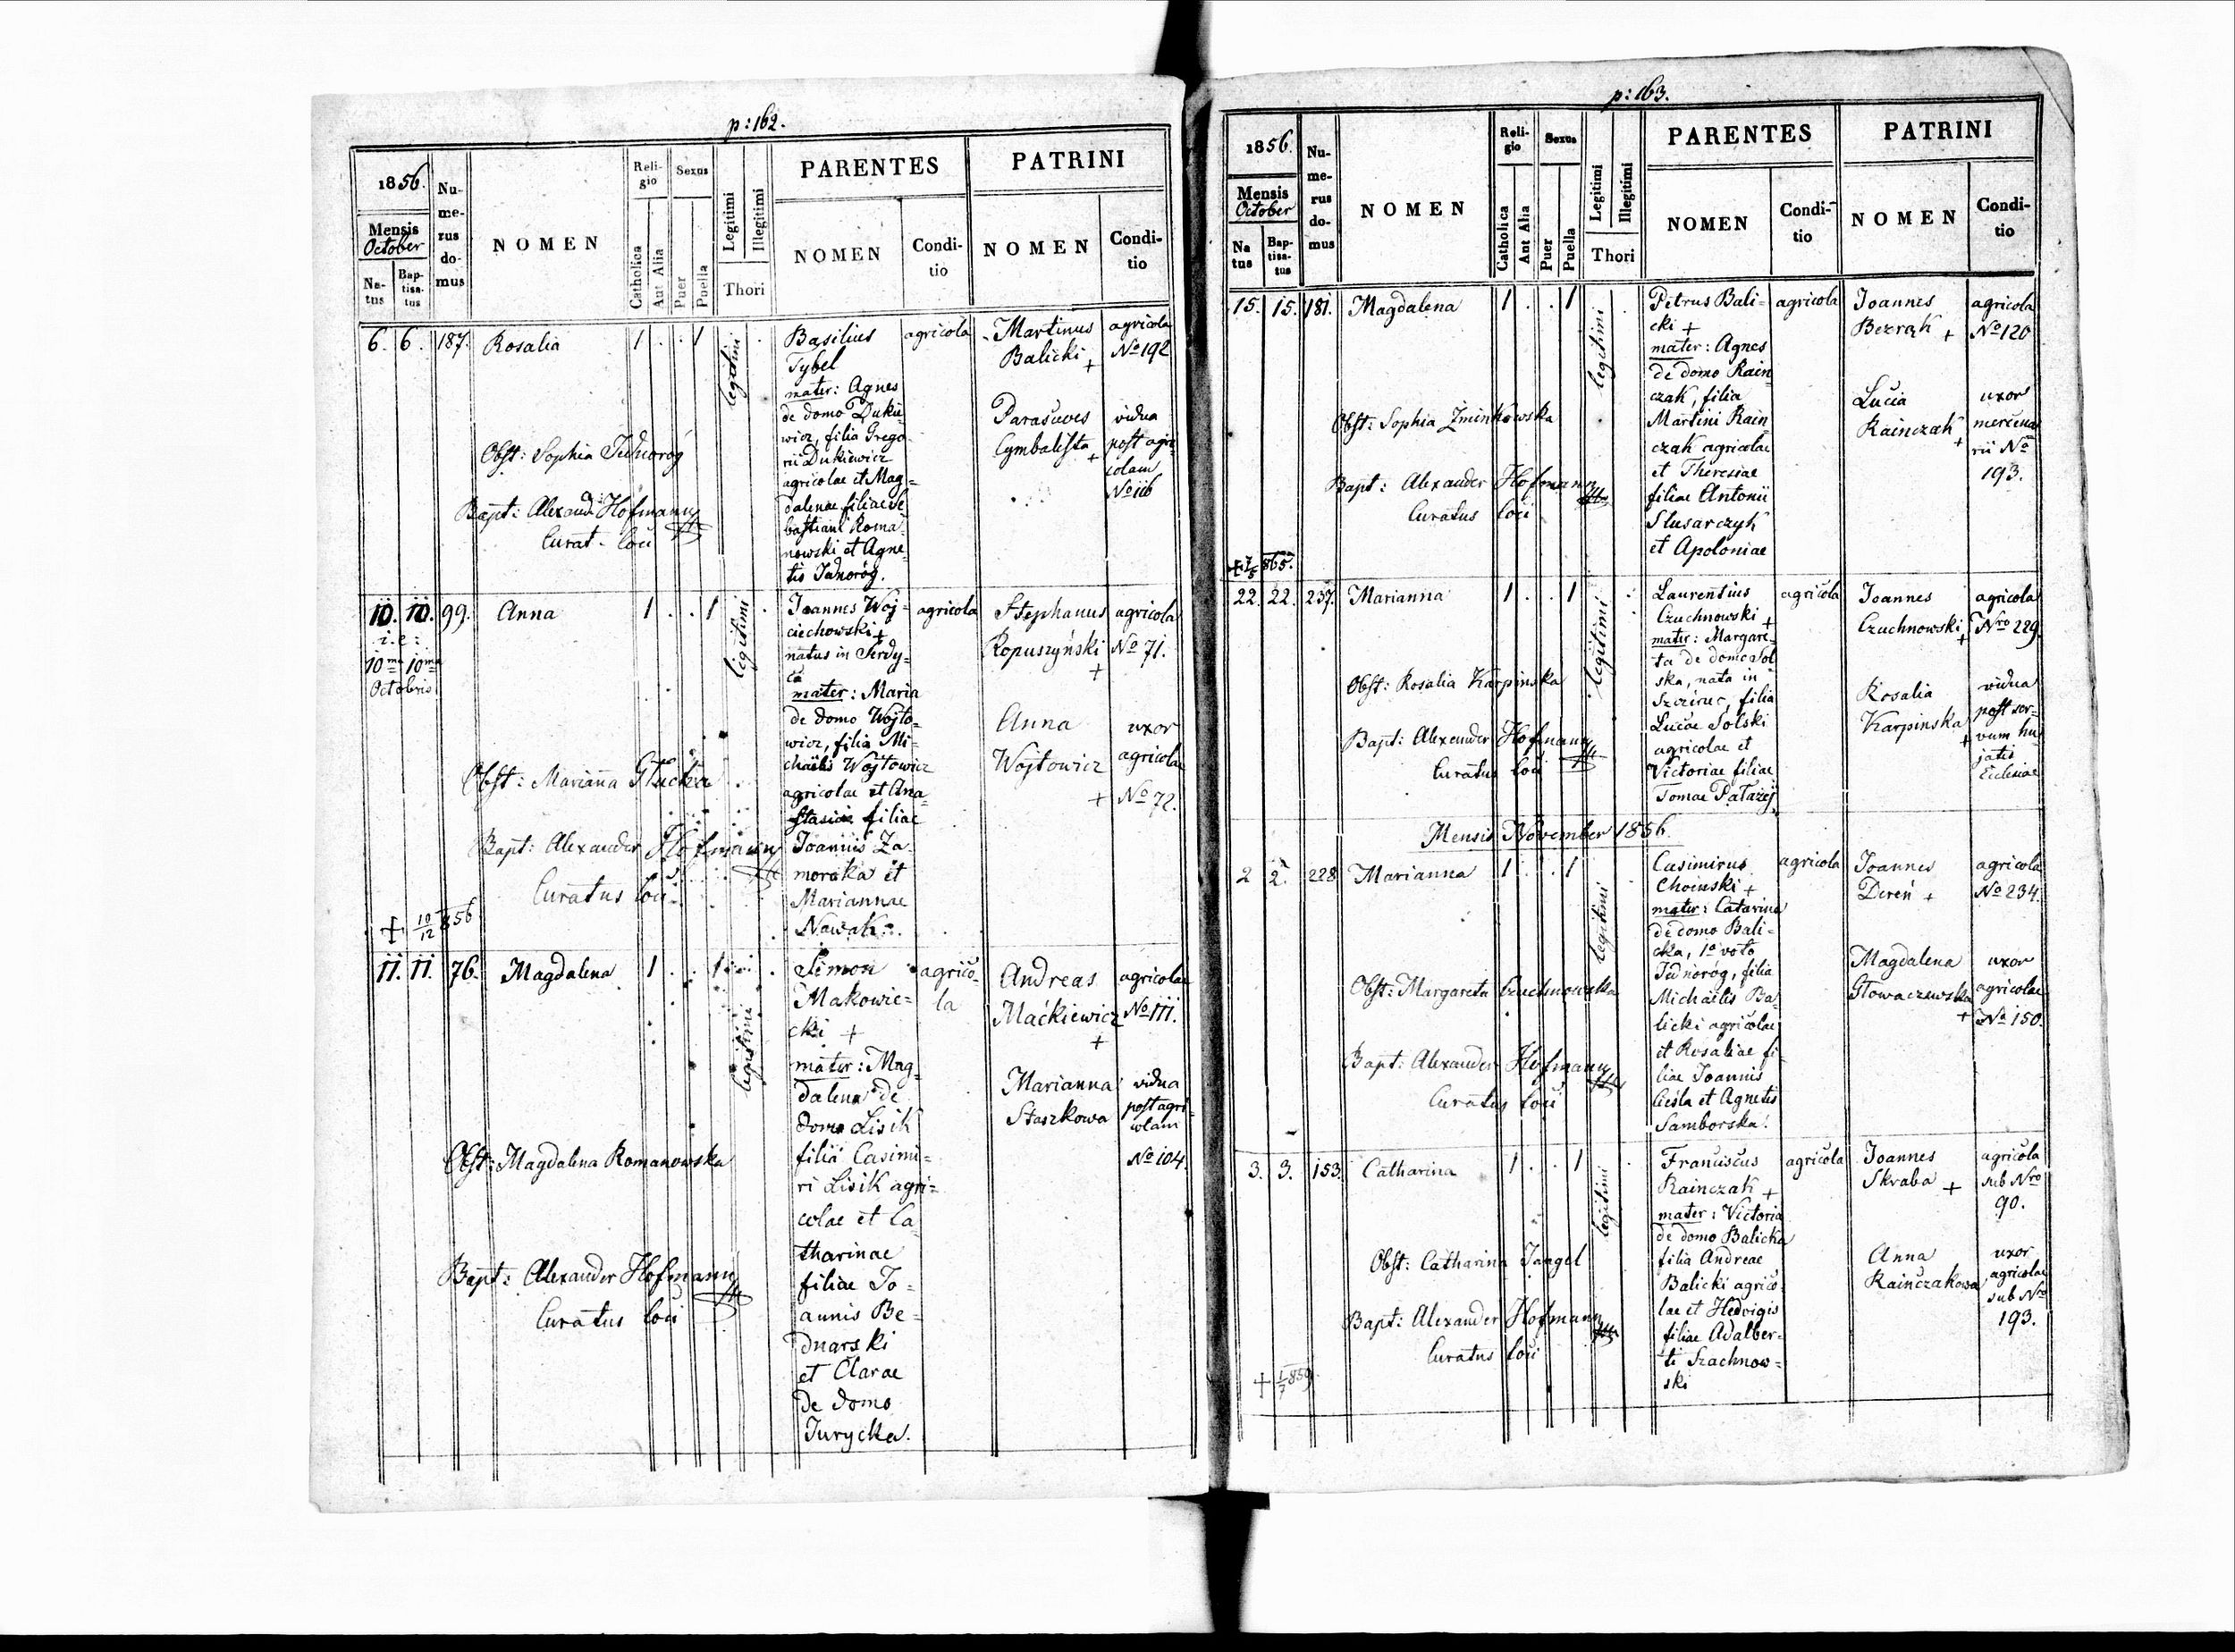 p: 162.
1856.
Mensis
October
Na-
tus
Bap-
tisa-
tus
Nu-
me-
rus
do-
mus
NOMEN
Reli-
gio
Catholica
Aut Alia
Sexus
Puer
Puella
Legitimi
Illegitimi
Thori
PARENTES
NOMEN
Condi-
tio
PATRINI
NOMEN
Condi-
tio
6. 6. 187. Rosalia 1 . . 1 legitimi .
Obst: Sophia Jednoróg
Bapt: Alexand: Hofmann
Curat. loci
Basilius
Tybel
mater: Agnes
de domo Dukie
wicz, filia Grego
rii Dukiewicz
agricolae et Mag=
dalenae filiae Se
bastiani Roma
nowski et Agne
tis Jednoróg.
agricola
Martinus
Balicki +
agricola
No 192
Parasceves
Cymbalista +
vidua
post agri=
colam
No 116
10. 10. 99. Anna 1 . . 1 legitimi .
i.e:
10ma 10ma
Octobris
Obst: Marianna Głucka
Bapt: Alexander Hofmann
Curatus loci
+ 10/12 856
Joannes Woj=
ciechowski +
natus in Serdy=
ca
mater: Maria
de domo Wojto=
wicz, filia Mi=
chaelis Wojtowicz
agricolae et Ana=
stasiae filiae
Joannis Za=
moraka et
Mariannae
Nawak.
agricola
Stephanus
Kopuszyński
+
agricola
No 71.
Anna
Wojtowicz
+
uxor
agricolae
No 72.
11. 11. 76. Magdalena 1 . . 1 legitimi .
Obst: Magdalena Romanowska
Bapt: Alexander Hofmann
Curatus loci
Simon
Makowie=
cki +
mater: Mag=
dalena de
domo Lisik
filia Casimi=
ri Lisik agri=
colae et Ca
tharinae
filiae Jo=
annis Be=
dnarski
et Clarae
de domo
Jurycka.
agrico=
la
Andreas
Maćkiewicz
+
agricola
No 111.
Marianna
Staszkowa
vidua
post agri=
colam
No 104.
p: 163.
1856.
Mensis
October
Na
tus
Bap-
tisa-
tus
Nu-
me-
rus
do-
mus
NOMEN
Reli-
gio
Catholica
Aut Alia
Sexus
Puer
Puella
Legitimi
Illegitimi
Thori
PARENTES
NOMEN
Condi-
tio
PATRINI
NOMEN
Condi-
tio
15. 15. 181. Magdalena 1 . . 1 legitimi .
Obst: Sophia Zminkowska
Bapt: Alexander Hofmann
Curatus loci
865.
Petrus Bali=
cki +
mater: Agnes
de domo Rain
czak, filia
Martini Rain
czak agricolae
et Theresiae
filiae Antonii
Slusarczyk
et Apoloniae
agricola
Joannes
Bezrąk +
agricola
No 120
Lucia
Rainczak
+
uxor
mercena
rii No
193.
22. 22. 237. Marianna 1 . . 1 legitimi .
Obst: Rosalia Karpinska
Bapt: Alexander Hofmann
Curatus loci
Laurentius
Czuchnowski +
mater: Margare=
ta de domo Sol
ska, nata in
Szczérzec, filia
Lucae Solski
agricolae et
Victoriae filiae
Tomae Patazij
agricola
Joannes
Czuchnowski +
agricola
Nro 229.
Rosalia
Karpinska
+
vidua
post ser=
vum hu
jatis
Ecclesiae
Mensis November 1856.
2 2. 228 Marianna 1 . . 1 legitimi .
Obst: Margareta Czuchnowska
Bapt: Alexander Hofmann
Curatus loci
Casimirus
Choinski +
mater: Catarina
de domo Bali=
cka, 1o voto
Jednoróg, filia
Michaëlis Ba=
licki agricolae
et Rosaliae fi=
liae Joannis
Ciésla et Agnetis
Samborska.
agricola
Joannes
Dereń +
agricola
No 234.
Magdalena
Głowaczewska
+
uxor
agricolae
No 150.
3. 3. 153. Catharina 1 . . 1 legitimi .
Obst: Catharina Jaagel
Bapt: Alexander Hofmann
Curatus loci
+ 1/7 859.
Franciscus
Rainczak +
mater: Victoria
de domo Balicka
filia Andreae
Balicki agrico
lae et Hedvigis
filiae Adalber=
ti Szachnow=
ski
agricola
Joannes
Skraba +
agricola
sub Nro
90.
Anna
Rainczakowa
uxor
agricolae
sub Nro
193.